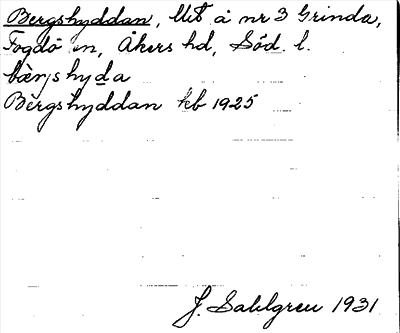 Bergshyddan, lht å nr 3 Grinda,
Fogdö sn, Åkers hd, Söd. l.
bæ̀rjs hyda
Bèrgshyddan kb 1925
J. Sahlgren 1931